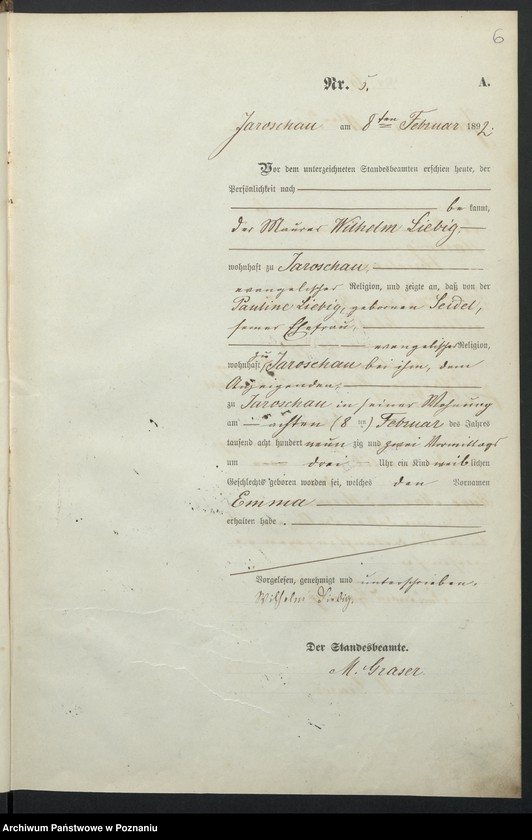 6
Nr. 5. A.
Jaroschau am 8ten Februar 1892.
Vor dem unterzeichneten Standesbeamten erschien heute, der
Persönlichkeit nach
bekannt,
der Maurer Wilhelm Liebig,
wohnhaft zu Jaroschau,
evangelischer Religion, und zeigte an, daß von der
Pauline Liebig, gebornen Seidel,
seiner Ehefrau,
evangelischer Religion,
wohnhaft zu Jaroschau bei ihm, dem
Anzeigenden,
zu Jaroschau in seiner Wohnung
am achten (8ten) Februar des Jahres
tausend acht hundert neunzig und zwei Vormittags
um drei Uhr ein Kind weiblichen
Geschlechts geboren worden sei, welches den Vornamen
Emma
erhalten habe.
Vorgelesen, genehmigt und unterschrieben.
Wilhelm Liebig.
Der Standesbeamte.
M. Graser
Archiwum Państwowe w Poznaniu